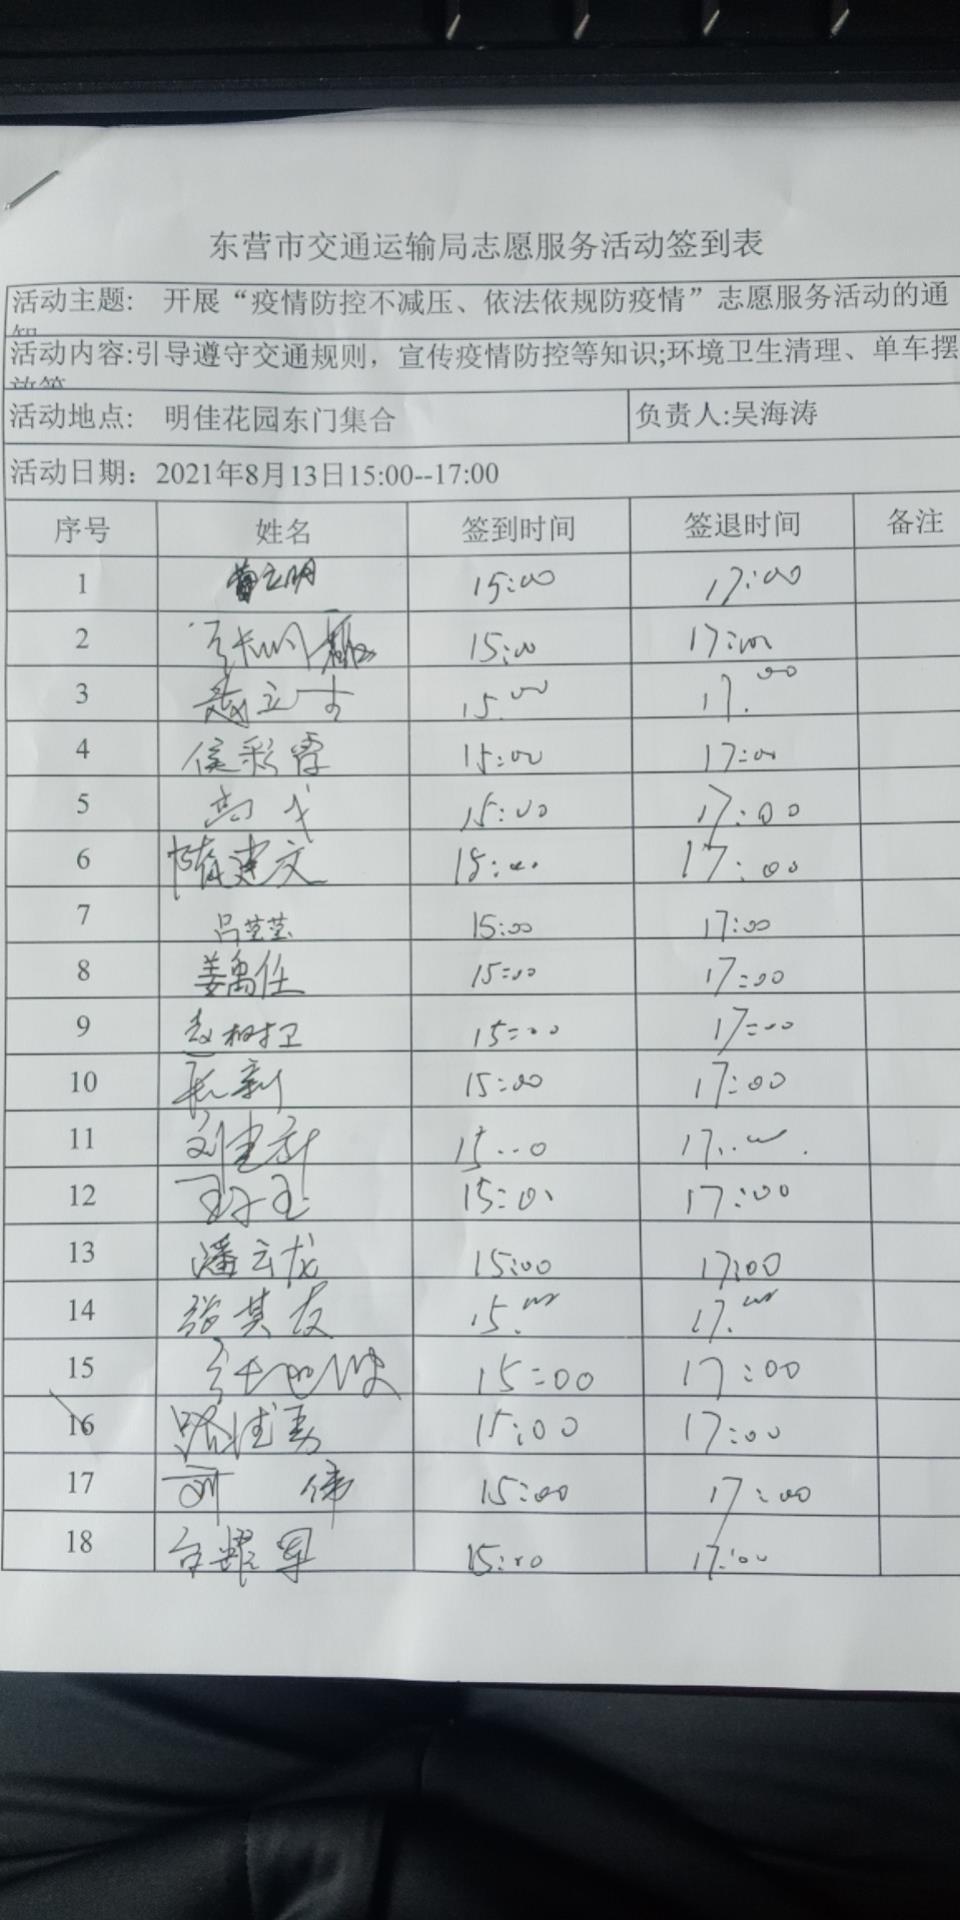 东营市交通运输局志愿服务活动签到表
活动主题: 开展“疫情防控不减压、依法依规防疫情”志愿服务活动的通
活动内容:引导遵守交通规则，宣传疫情防控等知识;环境卫生清理、单车摆
活动地点: 明佳花园东门集合 负责人:吴海涛
活动日期: 2021年8月13日15:00--17:00
序号 姓名 签到时间 签退时间 备注
1 15:00 17:00
2 15:00 17:00
3 15:00 17:00
4 侯彩霞 15:00 17:00
5 15:00 17:00
6 隋建文 15:00 17:00
7 吕莹莹 15:00 17:00
8 姜禹任 15:00 17:00
9 15:00 17:00
10 15:00 17:00
11 刘建新 15:00 17:00
12 15:00 17:00
13 潘云龙 15:00 17:00
14 张其友 15:00 17:00
15 15:00 17:00
16 15:00 17:00
17 伟 15:00 17:00
18 15:00 17:00